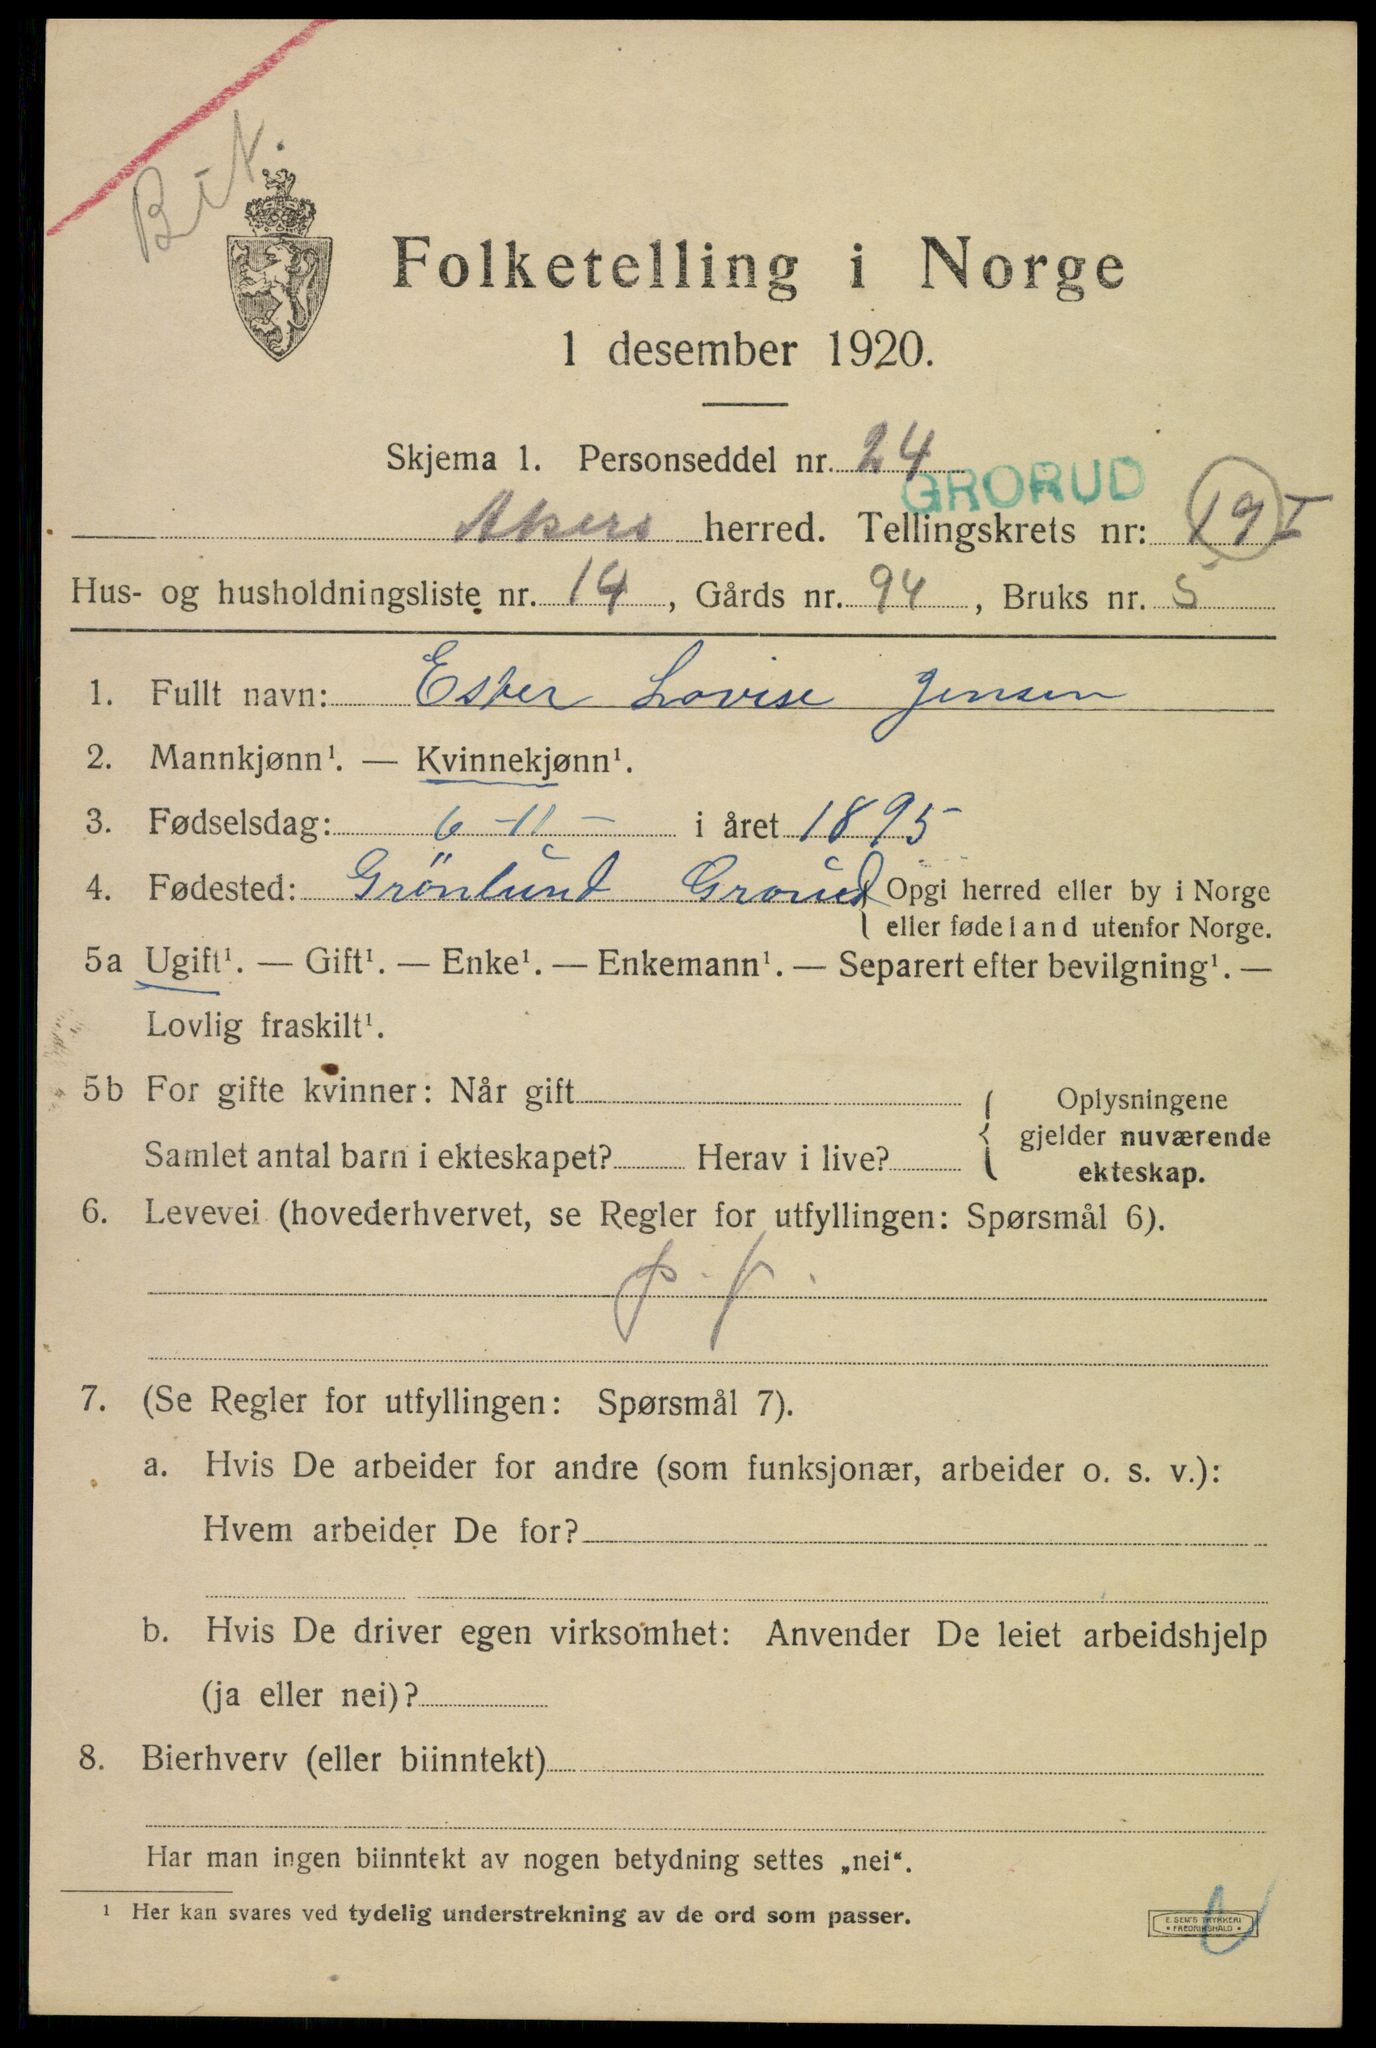 B.i.N.
Folketelling i Norge
1 desember 1920.
Skjema 1. Personseddel nr. 24
GRORUD
Akers herred. Tellingskrets nr: 19 I
Hus- og husholdningsliste nr. 14, Gårds nr. 94, Bruks nr. 5
1. Fullt navn: Ester Lovise Jensen
2. Mannkjønn¹. — Kvinnekjønn¹.
3. Fødselsdag: 6-11- i året 1895
4. Fødested: Grönlund Grorud { Opgi herred eller by i Norge
eller fødeland utenfor Norge.
5a Ugift¹. — Gift¹. — Enke¹. — Enkemann¹. — Separert efter bevilgning¹. —
Lovlig fraskilt¹.
5b For gifte kvinner: Når gift
Samlet antal barn i ekteskapet? Herav i live?
Oplysningene
gjelder nuværende
ekteskap.
6. Levevei (hovederhvervet, se Regler for utfyllingen: Spørsmål 6).
7. (Se Regler for utfyllingen: Spørsmål 7).
a. Hvis De arbeider for andre (som funksjonær, arbeider o. s. v.):
Hvem arbeider De for?
b. Hvis De driver egen virksomhet: Anvender De leiet arbeidshjelp
(ja eller nei)?
8. Bierhverv (eller biinntekt)
Har man ingen biinntekt av nogen betydning settes „nei“.
¹ Her kan svares ved tydelig understrekning av de ord som passer.
E. SEM'S TRYKKERI
• FREDRIKSHALD •